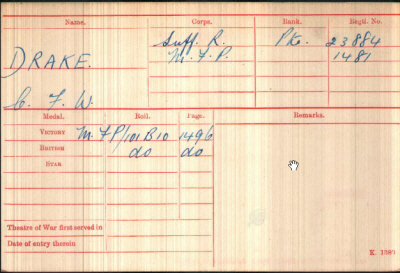 Name. Corps. Rank. Regtl. No.
DRAKE. Suff. R. Pte. 23884
M.F.P. 1481
C. F. W.
Medal. Roll. Page. Remarks.
VICTORY M.F.P/101B10 1496
BRITISH do do
STAR
Theatre of War first served in
Date of entry therein
K. 1380